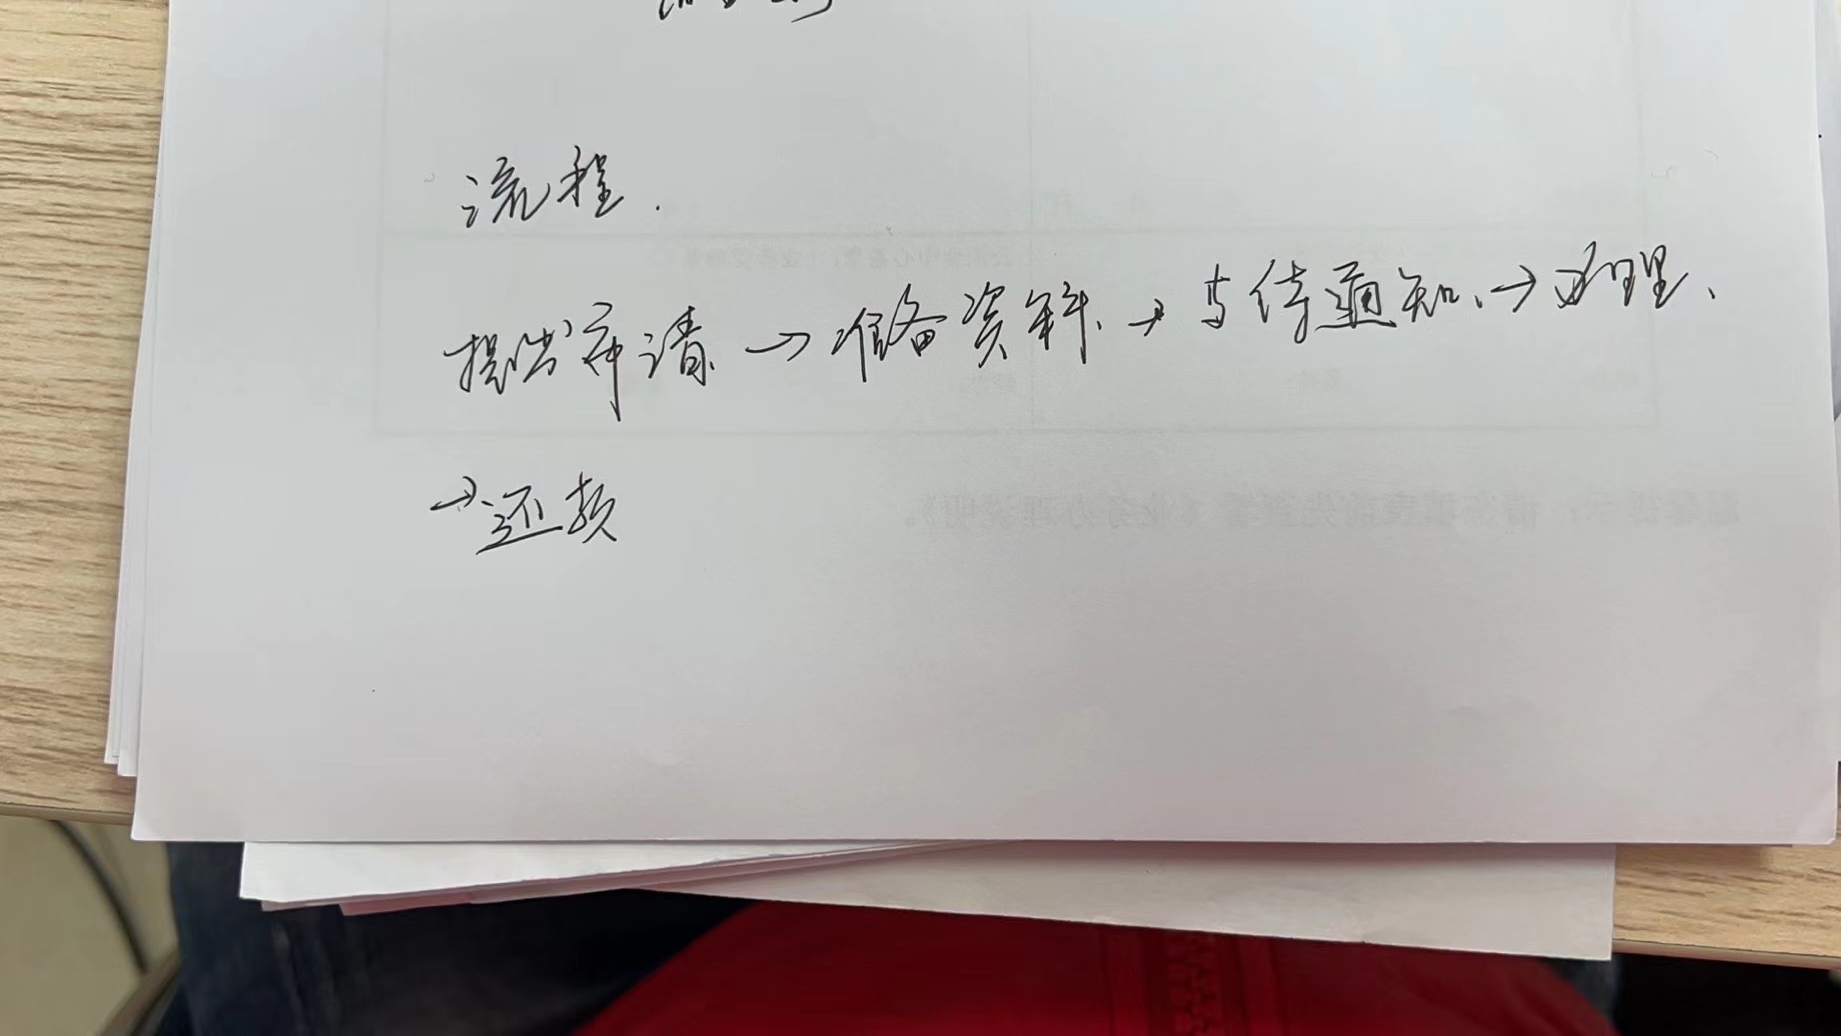 流程.
提出申请→准备资料、→等待通知、→办理、
→还款